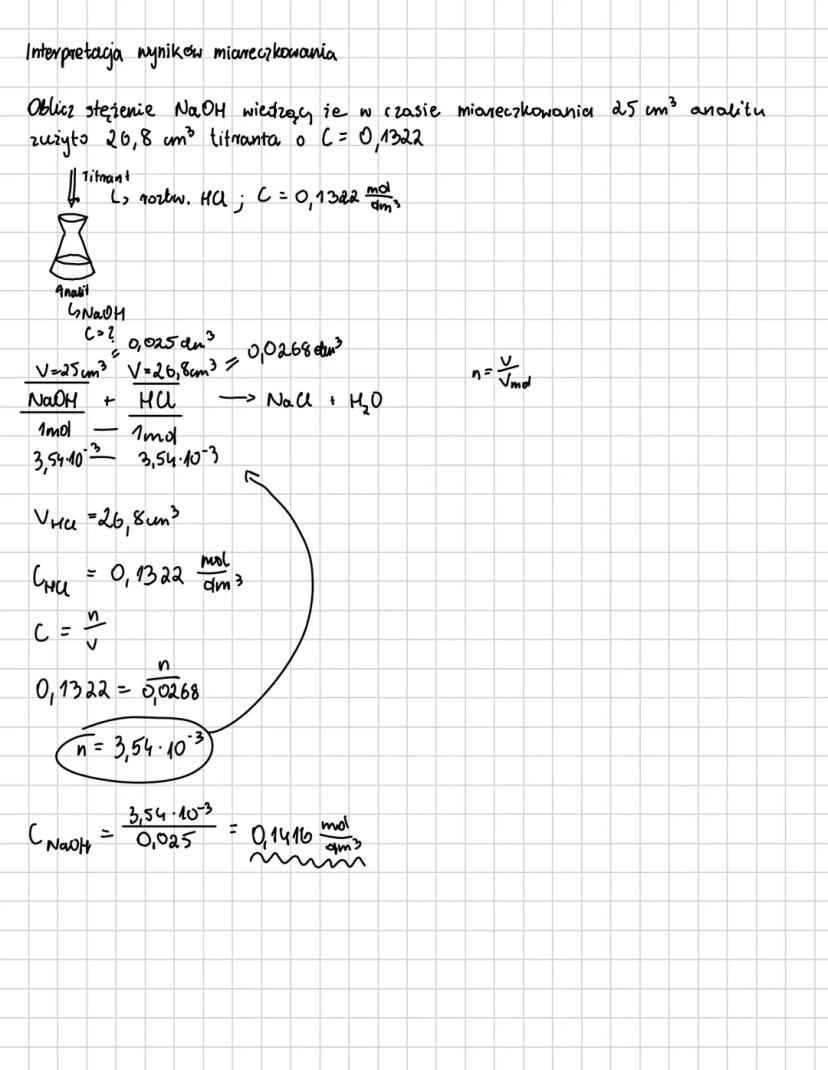 Interpretacja wyników miareczkowania
Oblicz stężenie NaOH wiedząc że w czasie miareczkowania 25 cm³ analitu
zużyto 26,8 cm³ titranta o C = 0,1322
Titrant
↳ roztw. HCl ; C = 0,1322 mol/dm³
Analit
↳ NaOH
C = ?
= 0,025 dm³
V=25cm³ V=26,8cm³ = 0,0268 dm³
n = V/Vmol
NaOH + HCl → NaCl + H₂O
1mol — 1mol
3,54·10⁻³ — 3,54·10⁻³
V_HCl = 26,8cm³
C_HCl = 0,1322 mol/dm³
C = n/V
0,1322 = n/0,0268
n = 3,54·10⁻³
C_NaOH = 3,54·10⁻³/0,025 = 0,1416 mol/dm³